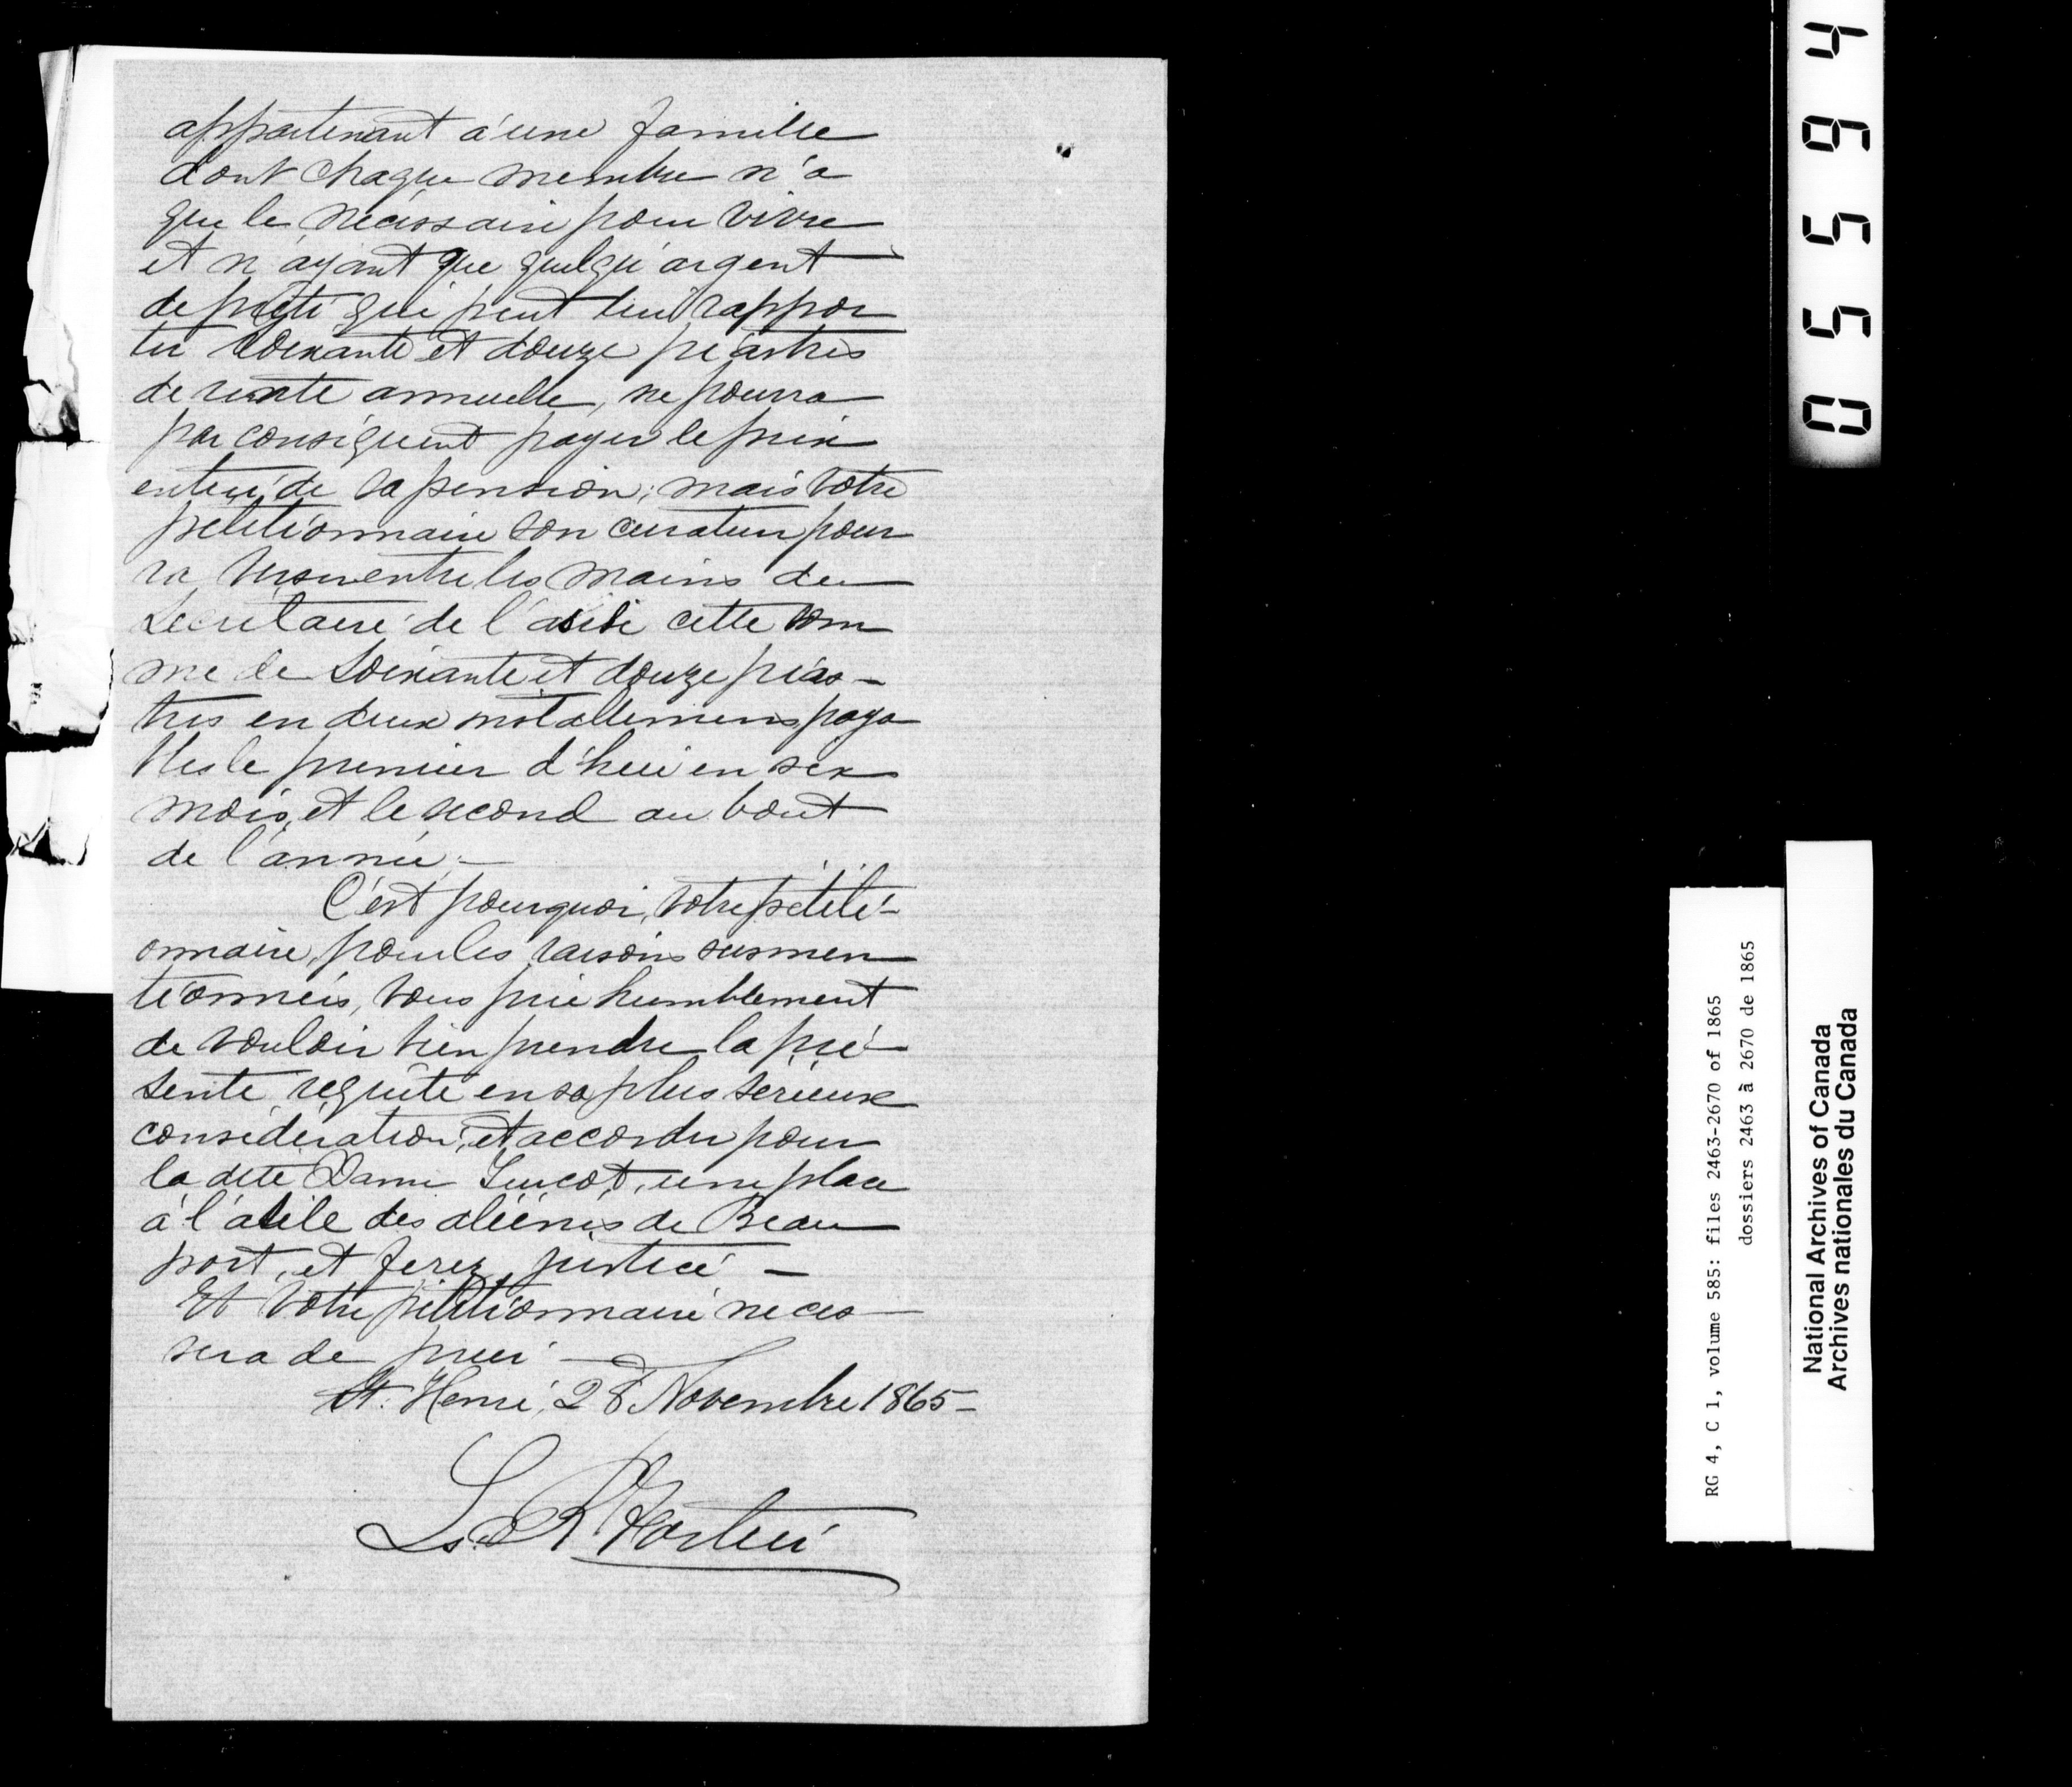 appartenant à une famille
dont chaque membre n'a
que le nécessaire pour vivre
et n'ayant que quelqu'argent
de prêté qui peut lui rappor
ter soixante et douze piastres
de rente annuelle, ne pourra
par conséquent payer le prix
entier de sa pension; mais votre
pétitionnaire son curateur pour
ra verser entre les mains du
Secrétaire de l'asile cette som
me de Soixante et douze pias-
tres en deux installemens paya
bles le premier d'hui en six
mois, et le second au bout
de l'année. -
C'est pourquoi, votre pétiti-
onnaire, pour les raisons susmen
tionnées, vous prie humblement
de vouloir bien prendre la pré-
sente requête en sa plus sérieuse
considération, et accorder pour
la dite Dame, une place
à l'asile des aliénés de Beau
port, et ferez justice -
Et votre pétitionnaire ne ces
sera de prier -
St. Henri, 28 Novembre 1865 -
Ls.
05594
RG 4, C 1, volume 585: files 2463-2670 of 1865
dossiers 2463 à 2670 de 1865
National Archives of Canada
Archives nationales du Canada